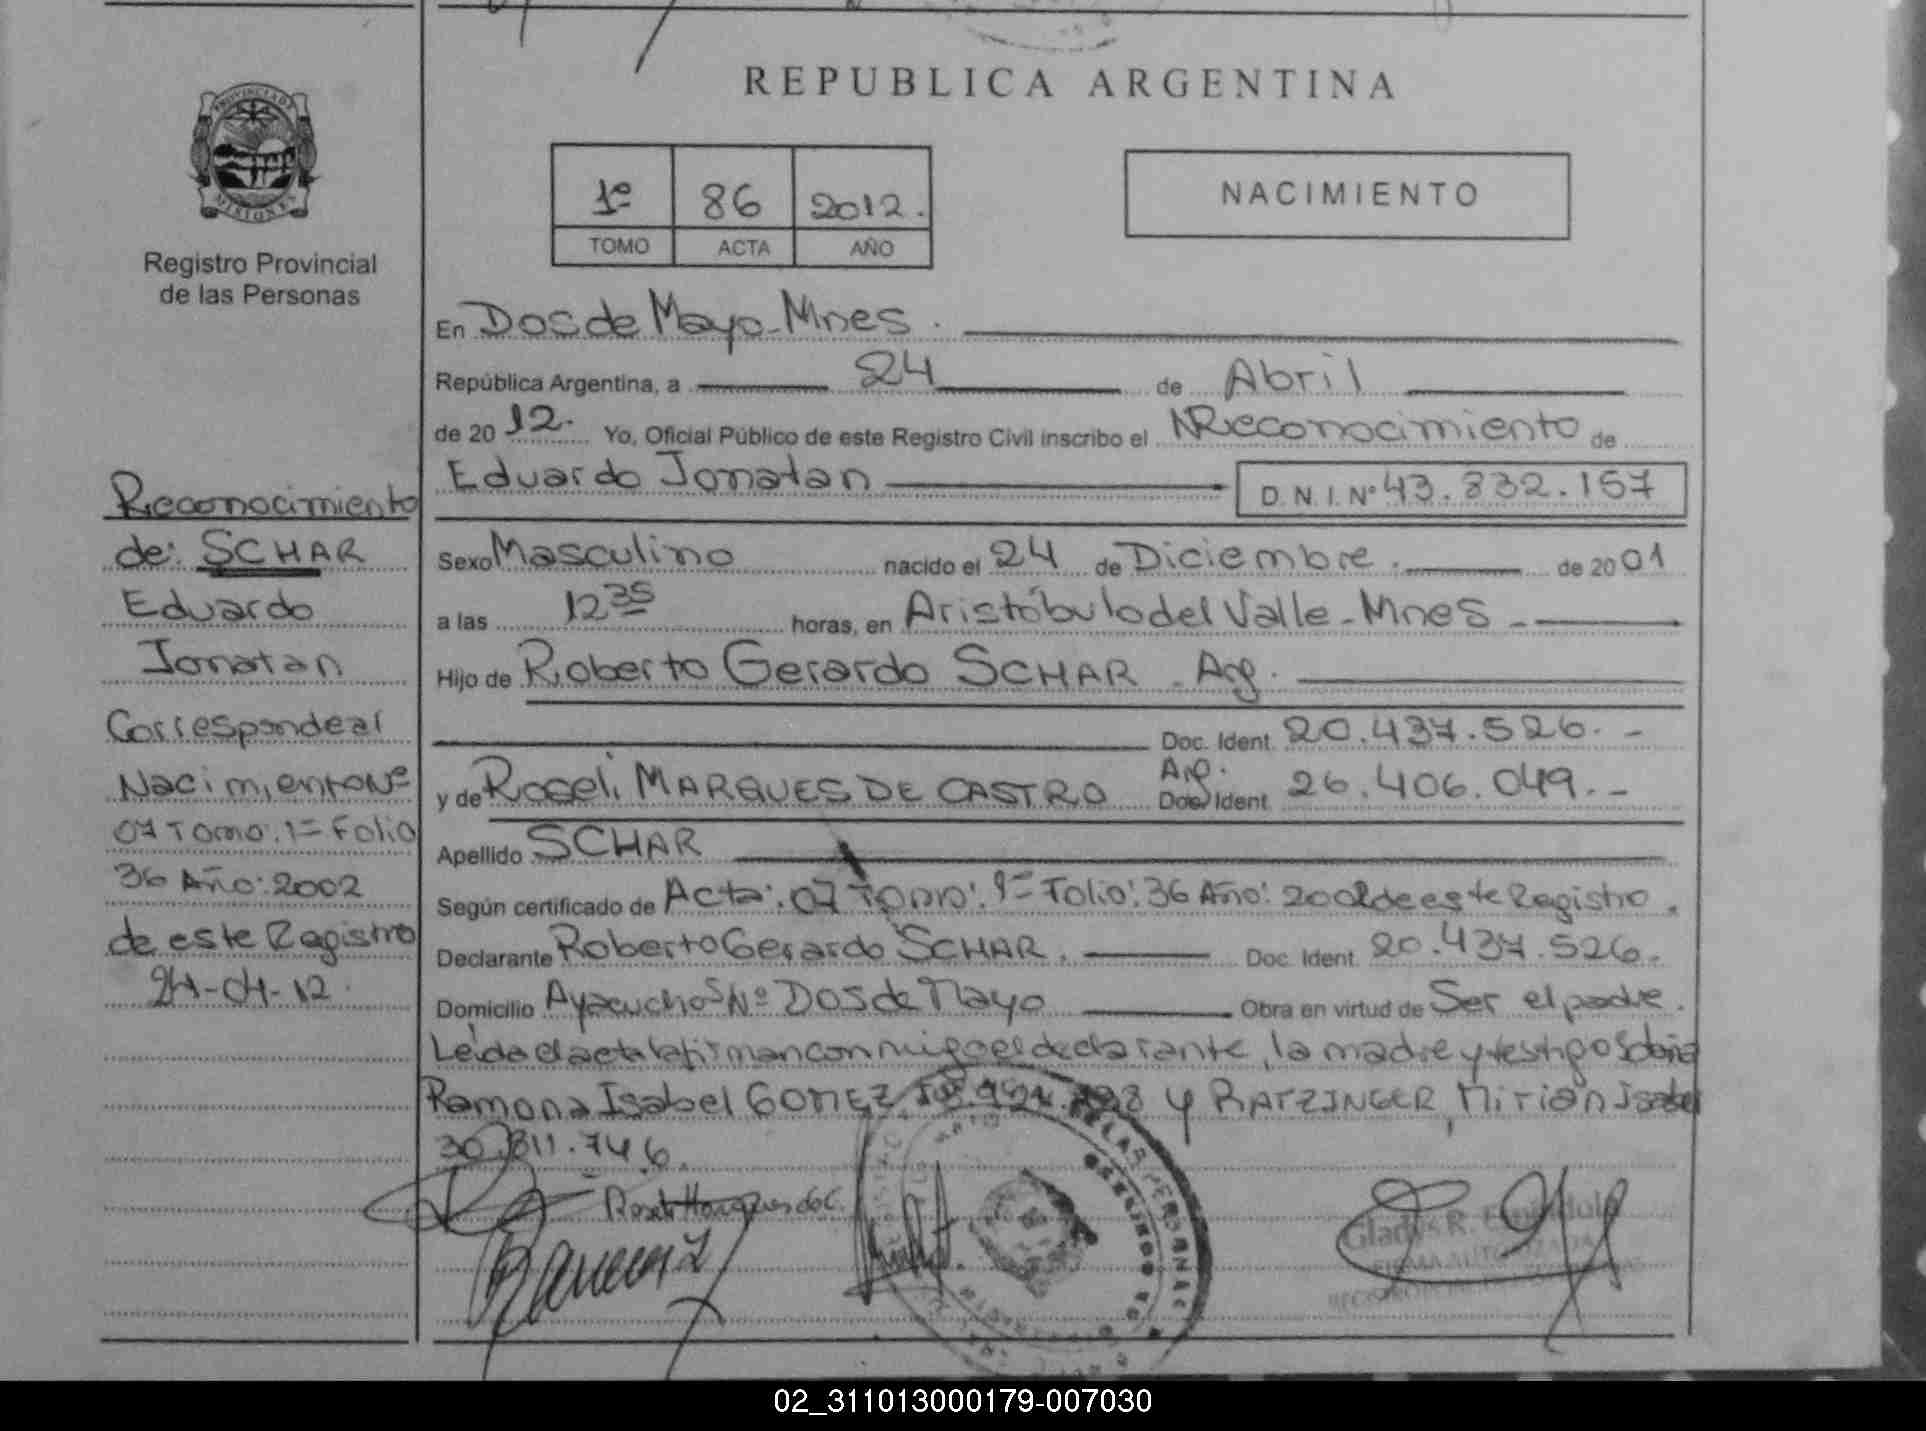 REPUBLICA ARGENTINA
PROVINCIA DE
MISIONES
Registro Provincial
de las Personas
1º 86 2012.
TOMO ACTA AÑO
NACIMIENTO
En Dos de Mayo - Mnes.
República Argentina, a 24 de Abril
de 20 12. Yo, Oficial Público de este Registro Civil inscribo el Reconocimiento de
Eduardo Jonatan D. N. I. Nº 43.832.157
Sexo Masculino nacido el 24 de Diciembre. de 20 01
a las 12 35 horas, en Aristóbulo del Valle - Mnes -
Hijo de Roberto Gerardo SCHAR - Arg.
Doc. Ident. 20.437.526. -
Arg.
y de Roseli MARQUES DE CASTRO Doc. Ident. 26.406.049. -
Apellido SCHAR
Según certificado de Acta: 07 Tomo: 1º Folio: 36 Año: 2002 de este Registro.
Declarante Roberto Gerardo SCHAR. Doc. Ident. 20.437.526.
Domicilio Ayacucho S/Nº Dos de Mayo Obra en virtud de Ser el padre.
Leída el acta la firman conmigo el declarante, la madre y testigos
Ramona Isabel GOMEZ y RATZINGER, Mirian Isabel
30.811.746.
Reconocimiento
de: SCHAR
Eduardo
Jonatan
Corresponde al
Nacimiento Nº
07 Tomo: 1º Folio
36 Año: 2002
de este Registro
24-04-12.
Gladys R.
02_311013000179-007030